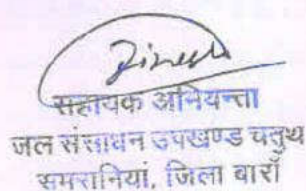 Dinesh
सहायक अभियन्ता
जल संसाधन उपखण्ड चतुर्थ
समरानियां, जिला बारॉं